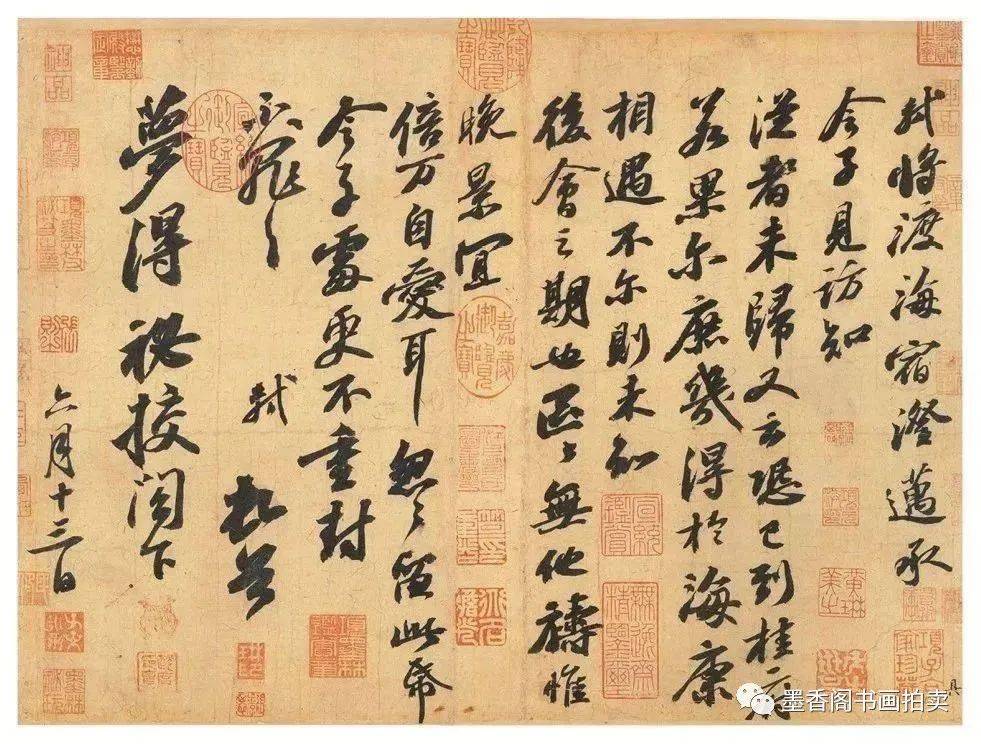 軾將渡海宿澄邁承
令子見訪知
從者未歸又云恐已到桂府
若果尔庶幾得於海康
相遇不尔則未知
後會之期也區々無他禱惟
晚景宜
倍万自愛耳怱々留此帋
令子處更不重封
不罪々 軾 頓首
夢得祕挍閣下
六月十三日
墨香阁书画拍卖